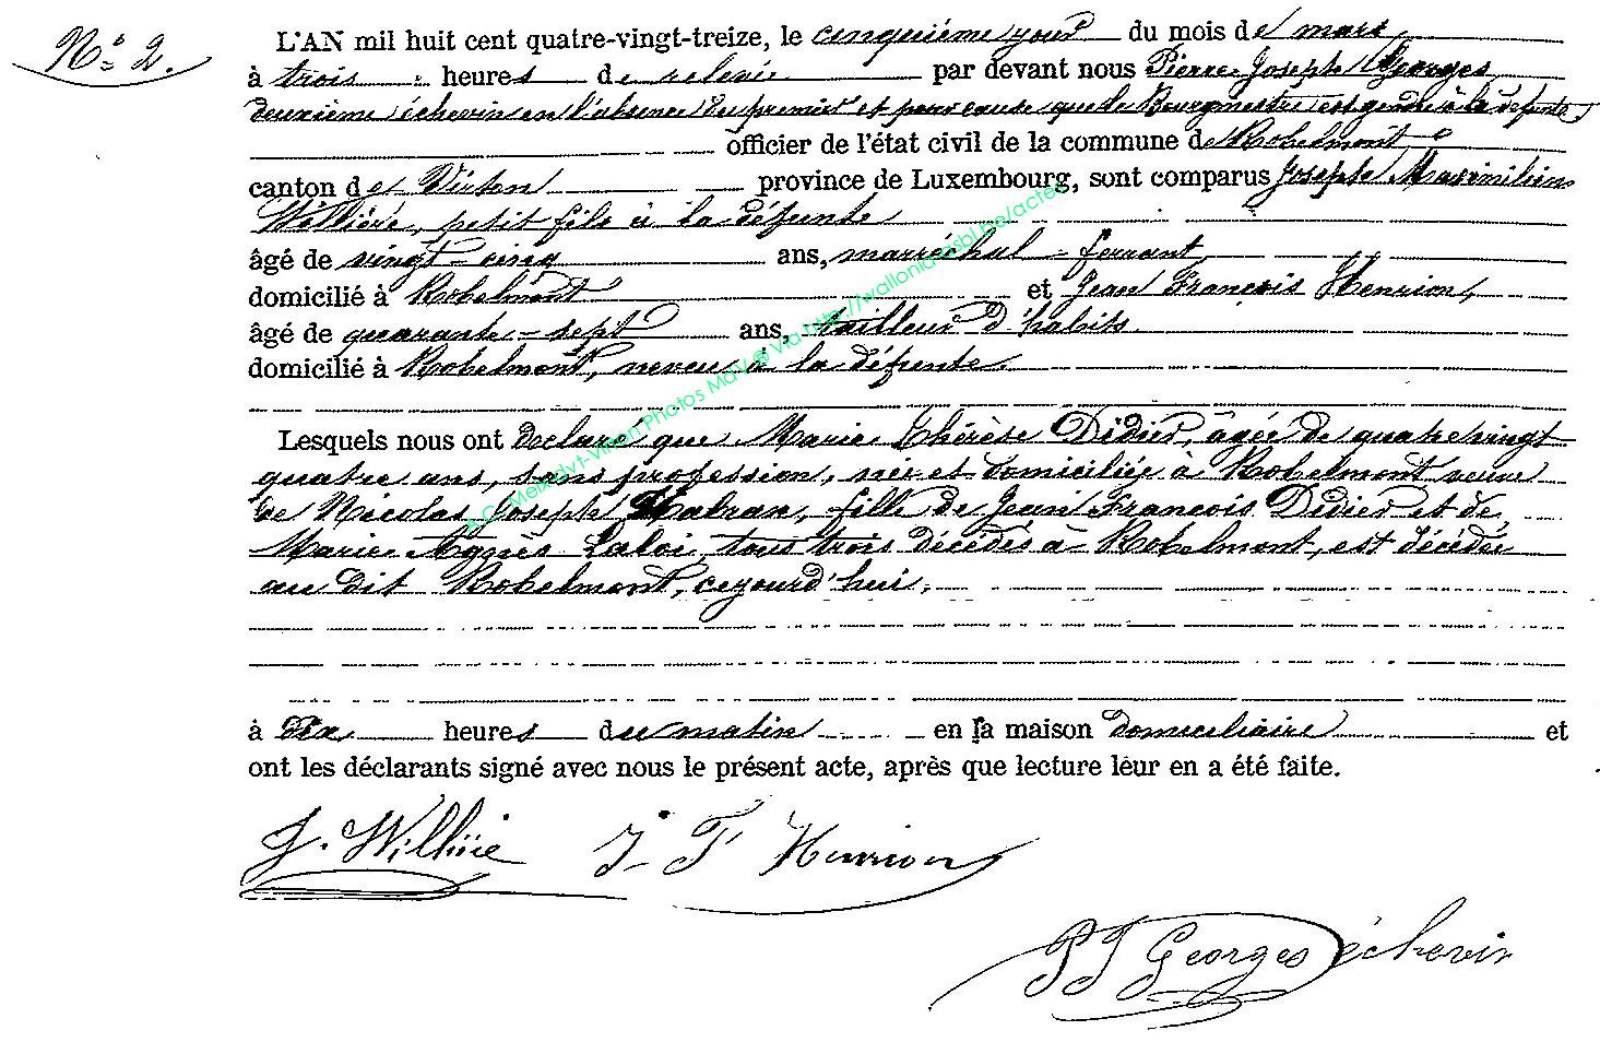 N° 2.
L'AN mil huit cent quatre-vingt-treize, le cinquième jour du mois de mars
à trois heures de relevée par devant nous Pierre Joseph Georges
deuxième échevin en l'absence du premier et pour cause que le Bourgmestre est gendre à la défunte
officier de l'état civil de la commune de Robelmont
canton de Virton province de Luxembourg, sont comparus Joseph Maximilien
Willière, petit fils à la défunte
âgé de vingt-cinq ans, marréchal-ferrant,
domicilié à Robelmont et Jean François Henrion,
âgé de quarante-sept ans, tailleur d'habits
domicilié à Robelmont, neveu à la défunte.
Lesquels nous ont declaré que Marie Thérèse Didier, âgée de quatrevingt
quatre ans, sans profession, née et domiciliée à Robelmont veuve
de Nicolas Joseph Habran, fille de Jean François Didier et de
Marie Agnès Laloi, tous trois décédés à Robelmont, est décédée
au dit Robelmont, cejourd'hui,
à dix heures du matin en sa maison domiciliaire et
ont les déclarants signé avec nous le présent acte, après que lecture leur en a été faite.
J. Willière J F Henrion
PJ Georges échevin
A.C. Meix-dvt-Virton Photos MdV © Via http://wallonia-asbl.be/actes